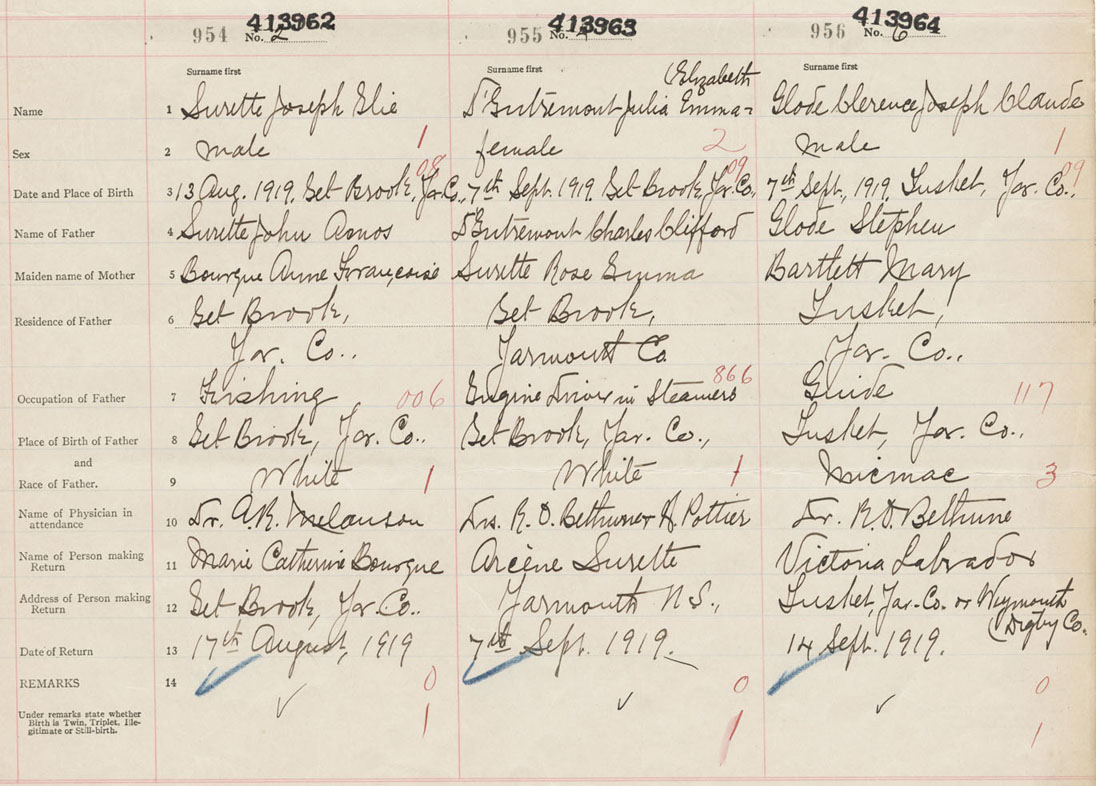 413962 413963 413964
954 No. 2 955 No. 956 No. 6
Surname first Surname first (Elizabeth Surname first
Name 1 Surette Joseph Elie D'Entremont Julia Emma- Glode Clerence Joseph Claude
1 2 1
Sex 2 male female male
08 09 09
Date and Place of Birth 3 13 Aug. 1919, Get Brook, Yar. Co., 7th Sept. 1919. Get Brook, Yar. Co., 7th Sept., 1919, Tusket, Yar. Co.,
Name of Father 4 Surette John Amos D'Entremont Charles Clifford Glode Stephen
Maiden name of Mother 5 Bourque Anne Françoise Surette Rose Emma Bartlett Mary
Residence of Father 6 Get Brook, Get Brook, Tusket,
Yar. Co., Yarmouth Co. Yar. Co.,
Occupation of Father 7 Fishing 006 Engine Driver in Steamers 866 Guide 117
Place of Birth of Father 8 Get Brook, Yar. Co., Get Brook, Yar. Co., Tusket, Yar. Co.,
and
Race of Father. 9 White 1 White 1 Micmac 3
Name of Physician in
attendance 10 Dr. A.R. Melanson Drs. R.O. Bethune & Pottier Dr. R.O. Bethune
Name of Person making
Return 11 Marie Catherine Bourque Arcène Surette Victoria Labrador
Address of Person making
Return 12 Get Brook, Yar. Co., Yarmouth N.S., Tusket, Yar. Co. or Weymouth
(Digby Co.
Date of Return 13 17th August, 1919 7th Sept. 1919. 14 Sept. 1919.
REMARKS 14 0 0 0
Under remarks state whether
Birth is Twin, Triplet, Ille-
gitimate or Still-birth. 1 1 1